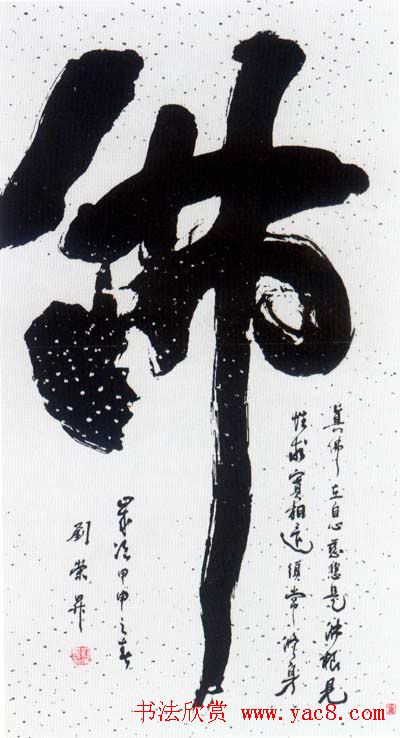 佛
真佛在自心慈悲是法根見
性求實相還須常修身
歲次甲申之春
劉榮昇
书法欣赏 www.yac8.com